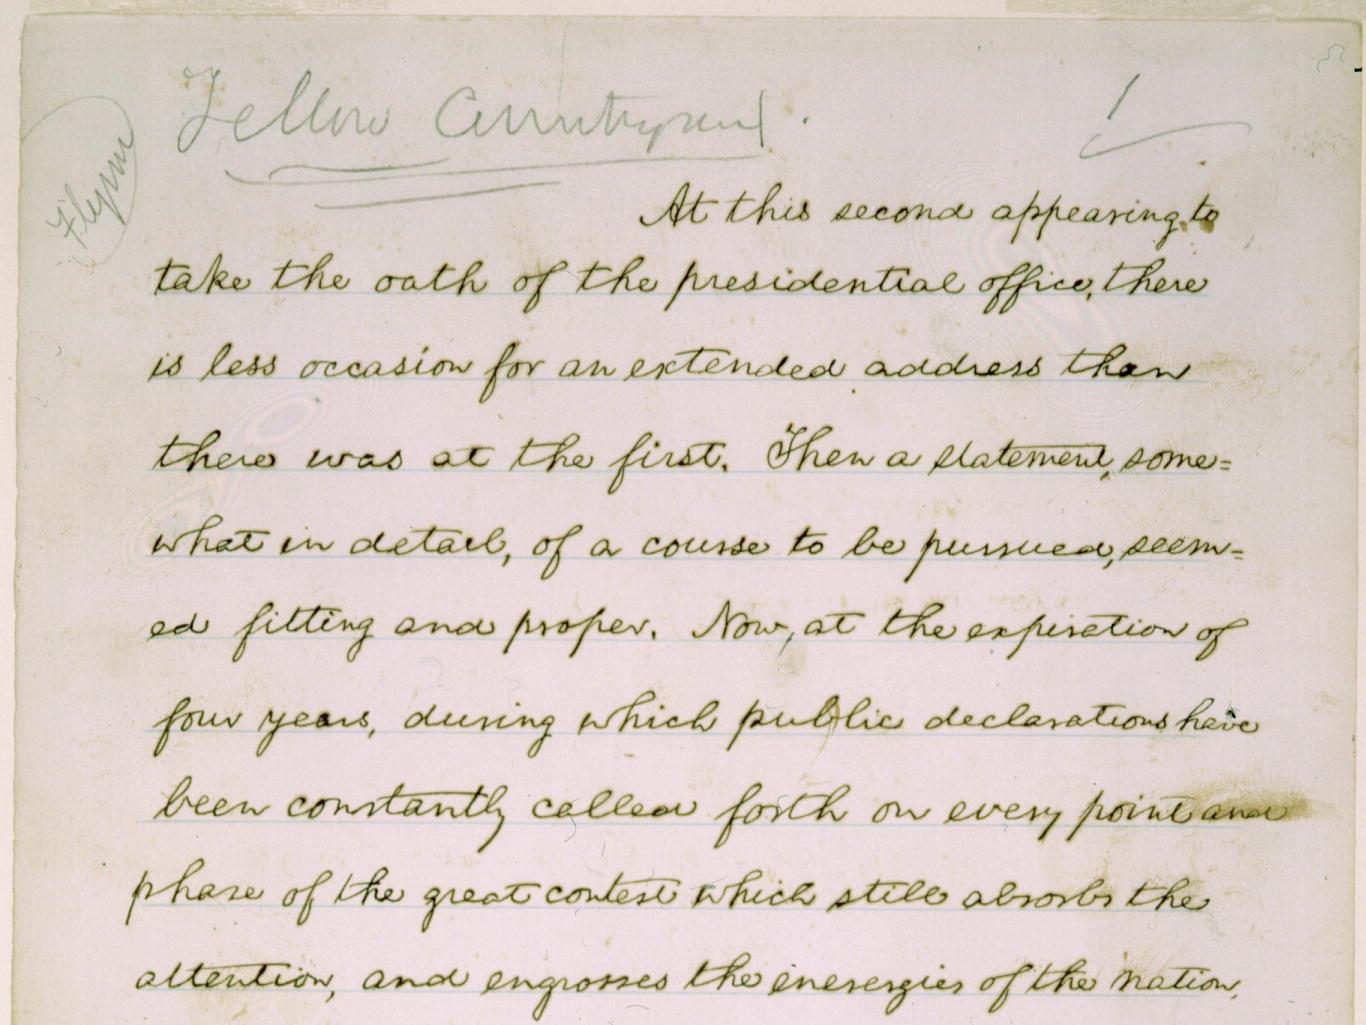 Fellow Countrymen.
1
Flynn
At this second appearing, to
take the oath of the presidential office, there
is less occasion for an extended address than
there was at the first. Then a statement, some=
what in detail, of a course to be pursued, seem=
ed fitting and proper. Now, at the expiration of
four years, during which public declarations have
been constantly called forth on every point and
phase of the great contest which still absorbs the
attention, and engrosses the enerergies of the nation,